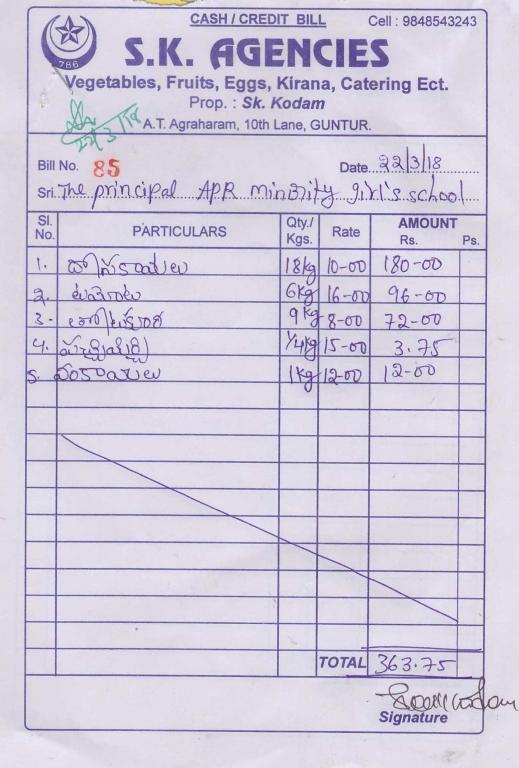 CASH / CREDIT BILL Cell : 9848543243
786
S.K. AGENCIES
Vegetables, Fruits, Eggs, Kirana, Catering Ect.
Prop. : Sk. Kodam
22/3/18
A.T. Agraharam, 10th Lane, GUNTUR.
Bill No. 85 Date 22/3/18
Sri. The principal APR minority girl's school
Sl. No. PARTICULARS Qty./ Kgs. Rate AMOUNT Rs. Ps.
1. దోసకాయలు 18kg 10-00 180-00
2. టమాటు 6kg 16-00 96-00
3. 9kg 8-00 72-00
4. పచ్చిమిర్చి 1/4kg 15-00 3.75
5. వంకాయలు 1kg 12-00 12-00
TOTAL 363.75
Signature